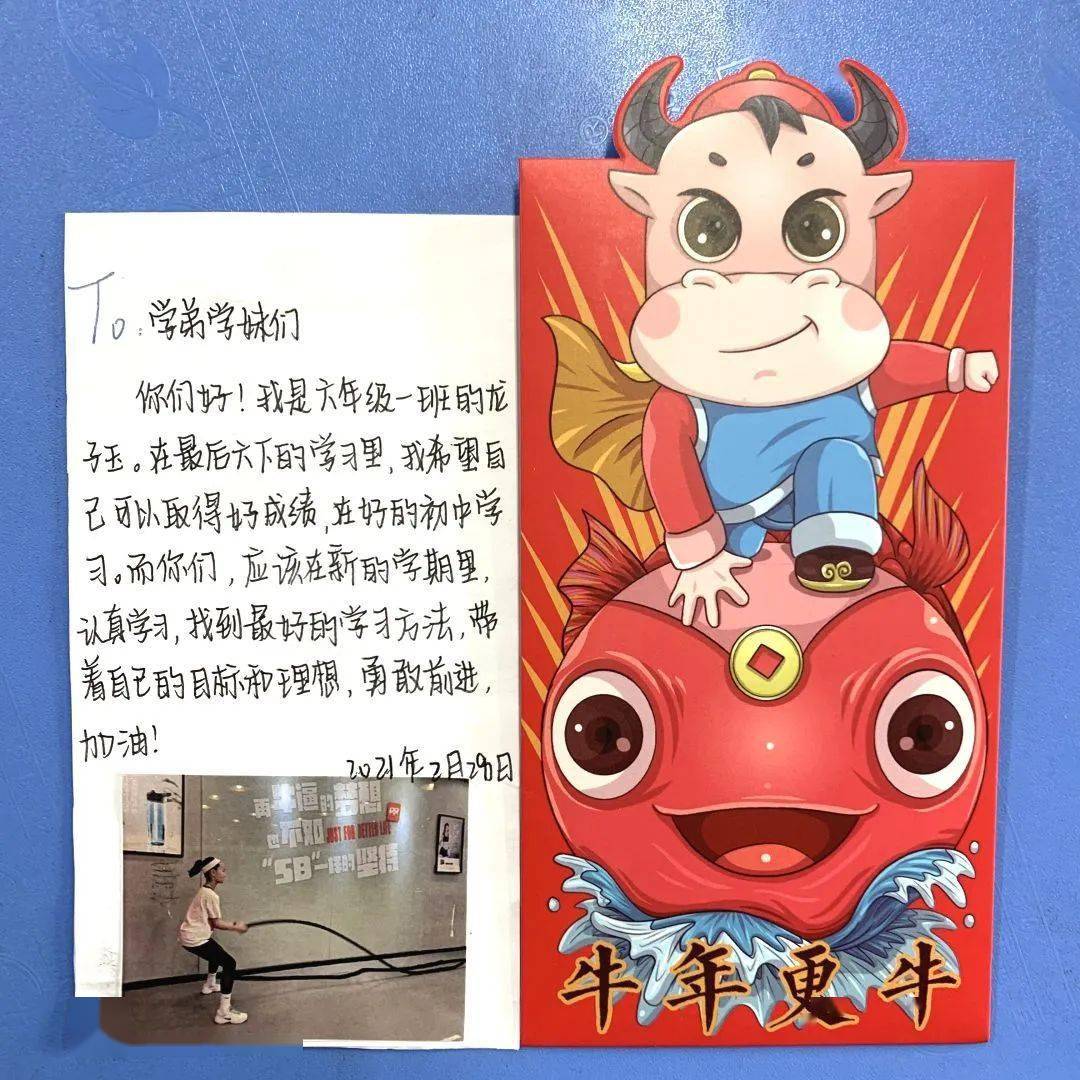 To:学弟学妹们
你们好！我是六年级一班的龙
子玉。在最后六下的学习里，我希望自
己可以取得好成绩，在好的初中学
习。而你们，应该在新的学期里，
认真学习，找到最好的学习方法，带
着自己的目标和理想，勇敢前进，
加油！
2021年2月28日
再牛逼的梦想
也不如 JUST FOR BETTER LIFE
“SB”一样的坚持
牛年更牛